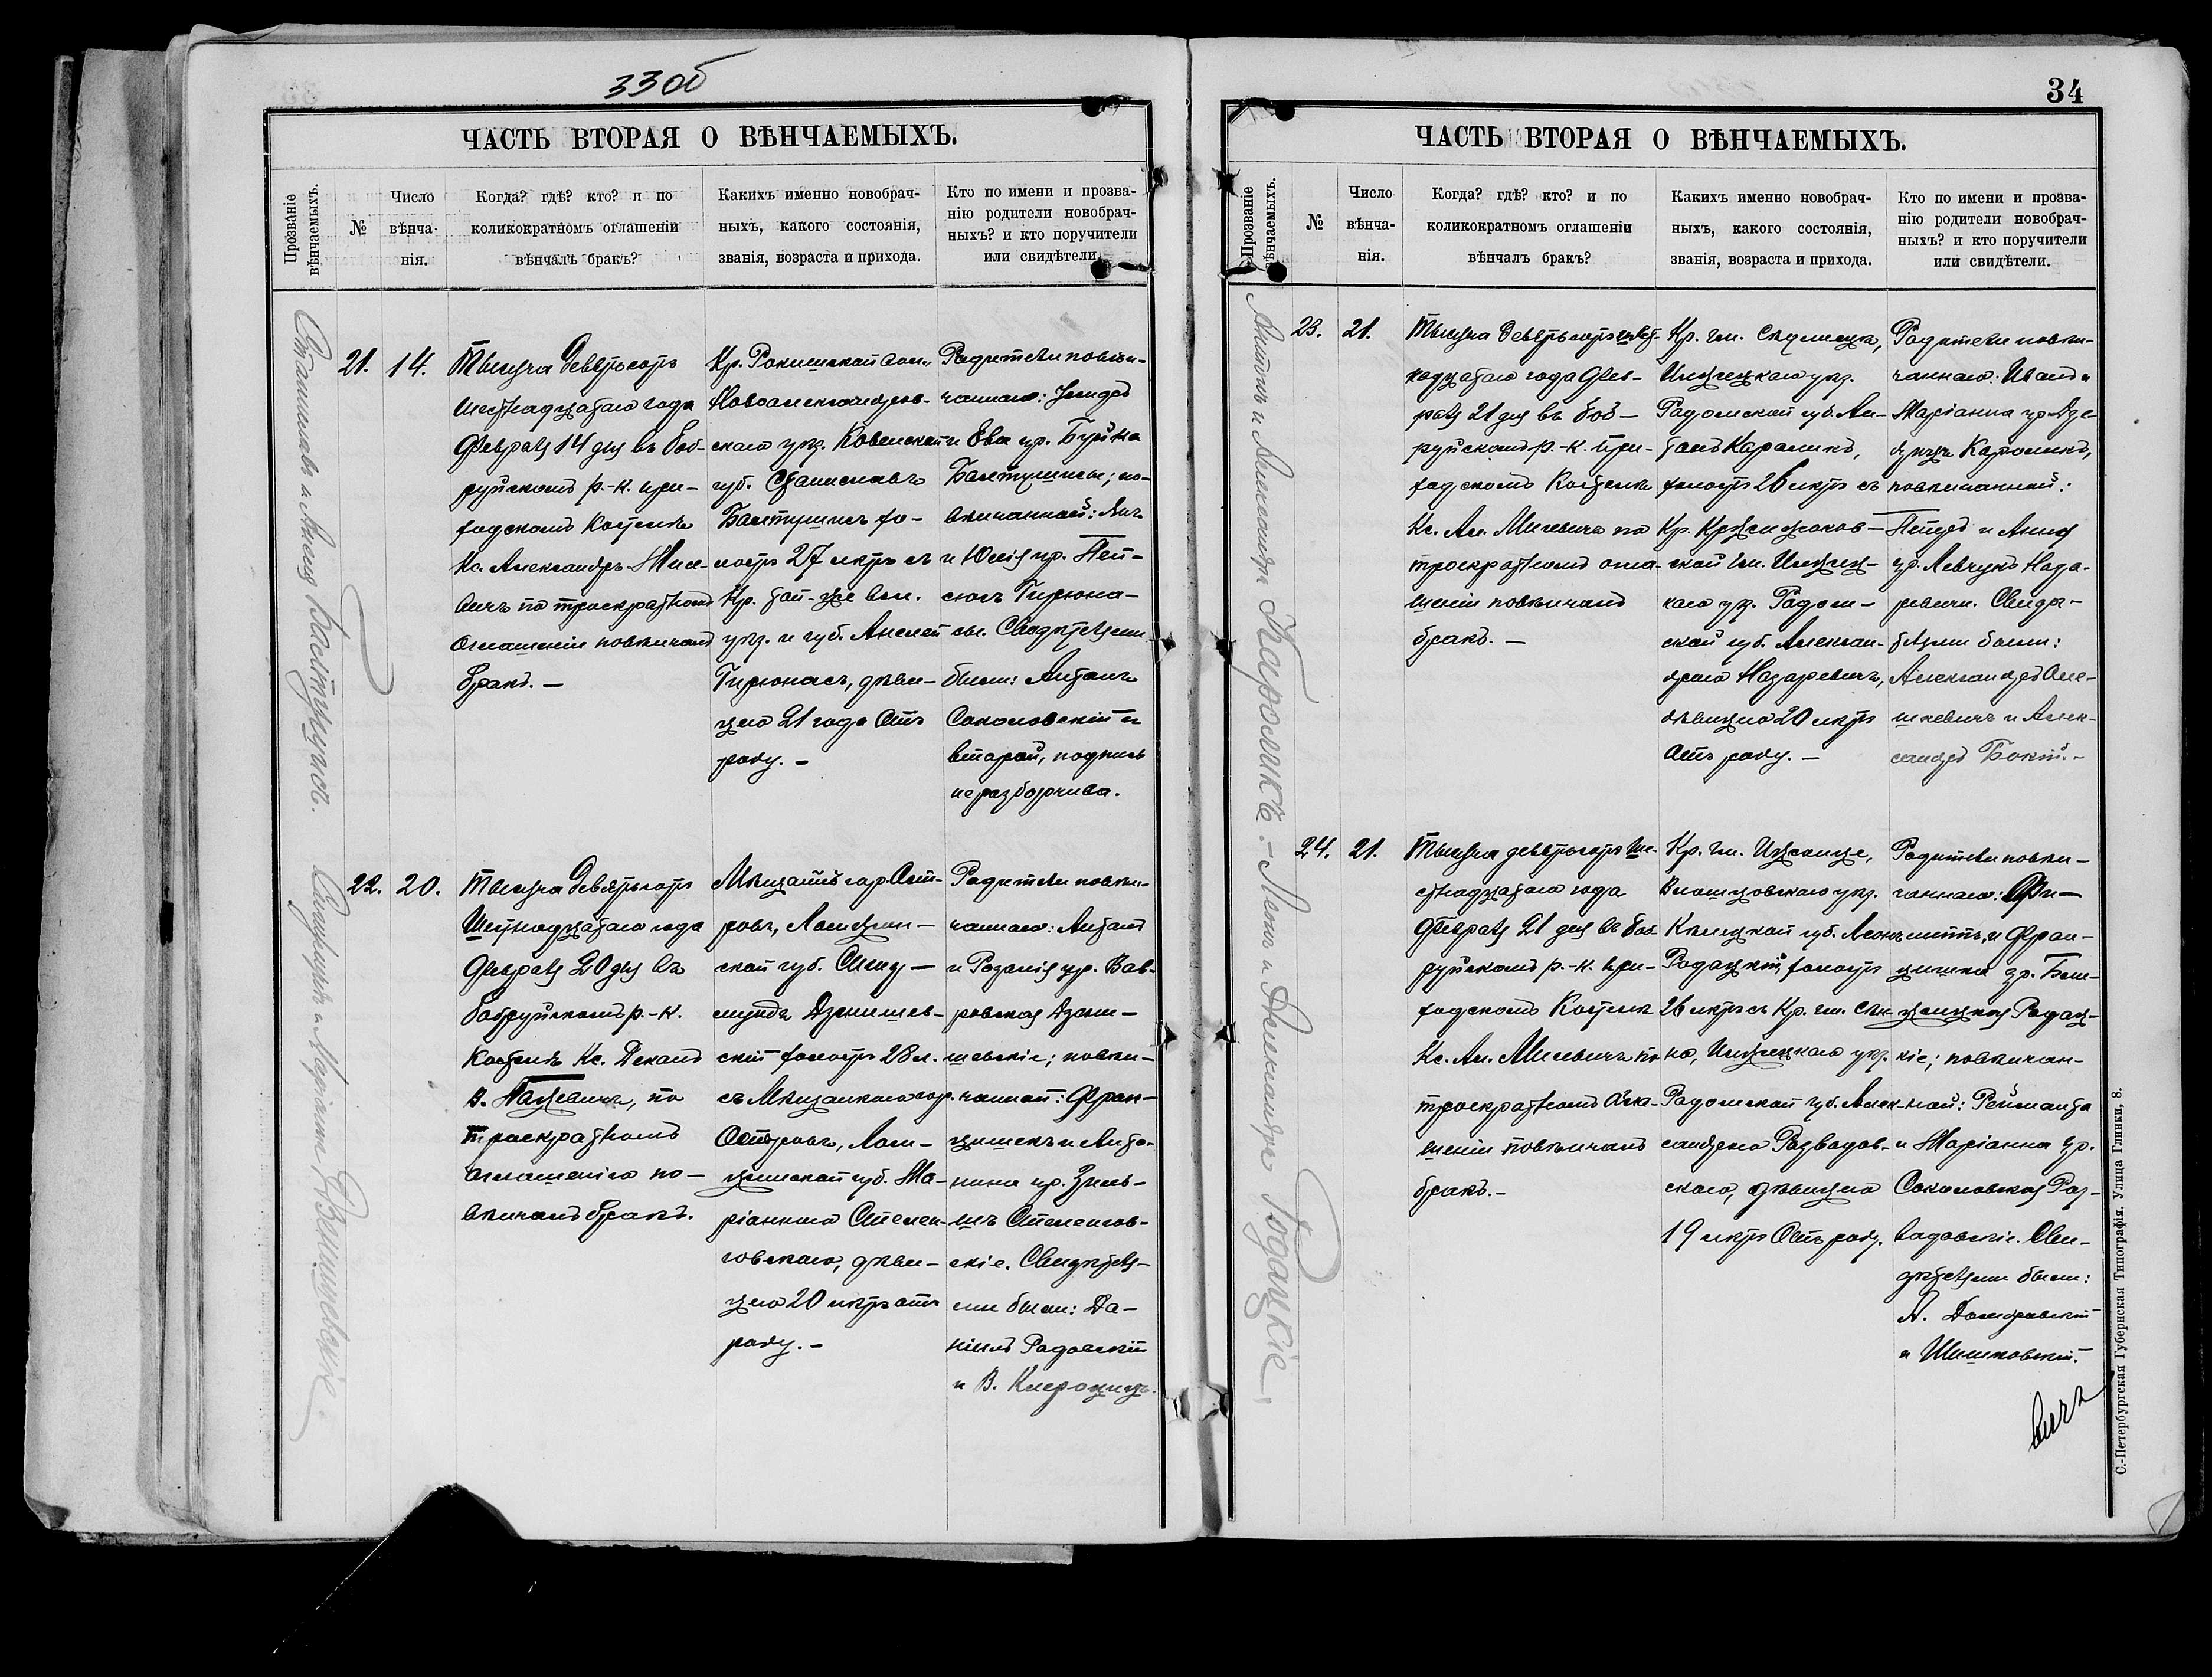 33об
ЧАСТЬ ВТОРАЯ О ВѢНЧАЕМЫХЪ.
Прозваніе
вѣнчаемыхъ.
№
Число
вѣнча-
нія.
Когда? гдѣ? кто? и по
коликократномъ оглашеніи
вѣнчалъ бракъ?
Какихъ именно новобрач-
ныхъ, какого состоянія,
званія, возраста и прихода.
Кто по имени и прозва-
нію родители новобрач-
ныхъ? и кто поручители
или свидѣтели.
Станиславъ и Анеля
21.
14.
Тысяча девятьсотъ
шестнадцатаго года
Февраля 14 дня въ Боб-
руйскомъ р.-к. при-
ходскомъ костелѣ
Кс. Александръ Миле-
вичъ по троекратномъ
оглашеніи повѣнчалъ
бракъ. —
Кр. Ракишской вол.,
Новоалександров-
скаго уѣз. Ковенской
губ. Станиславъ
Балтушисъ хо-
лостъ 27 лѣтъ съ
Кр. вол.
уѣз. и губ. Анелей
Гирюнасъ, дѣви-
цею 21 года отъ
роду. —
Родители повѣн-
чаннаго:
и Ева ур.
Балтушисы; по-
вѣнчанной:
и Юлія ур.
Гирюна-
сы. Свидѣтелями
были: Антонъ
Соколовскій и
второй, подпись
неразборчива.
Маріанна Дзенишевскіе.
22.
20.
Тысяча девятьсотъ
Шестнадцатаго года
Февраля 20 дня въ
Бобруйскомъ р.-к.
костелѣ Кс. Деканъ
В. Пацевичъ, по
троекратномъ
оглашеніи по-
вѣнчалъ бракъ.
Мѣщанинъ гор. Ост-
ровъ, Ломжин-
ской губ. Сигиз-
мундъ Дзенишев-
скій холостъ 28 л.
съ Мѣщанкою гор.
Островъ, Лом-
жинской губ. Ма-
ріанною Стелен-
говскою, дѣви-
цею 20 лѣтъ отъ
роду. —
Родители повѣн-
чаннаго: Антонъ
и Розалія ур. Вав-
ровская Дзени-
шевскіе; повѣн-
чанной: Фран-
цишекъ и Анто-
нина ур.
Стеленгов-
скіе. Свидѣтеля-
ми были: Да-
ніилъ Радовскій
и В.
34
ЧАСТЬ ВТОРАЯ О ВѢНЧАЕМЫХЪ.
Прозваніе
вѣнчаемыхъ.
№
Число
вѣнча-
нія.
Когда? гдѣ? кто? и по
коликократномъ оглашеніи
вѣнчалъ бракъ?
Какихъ именно новобрач-
ныхъ, какого состоянія,
званія, возраста и прихода.
Кто по имени и прозва-
нію родители новобрач-
ныхъ? и кто поручители
или свидѣтели.
Антонъ и Александра Кароликъ. —
23.
21.
Тысяча девятьсотъ шест-
надцатаго года Фев-
раля 21 дня въ Боб-
руйскомъ р.-к. при-
ходскомъ Костелѣ
Кс. Ал. Милевичъ по
троекратномъ огла-
шеніи повѣнчалъ
бракъ. —
Кр. гм.
Илжецкаго уѣз.
Радомской губ. Ан-
тонъ Кароликъ,
холостъ 26 лѣтъ съ
Кр.
ской гм. Илжец-
каго уѣз. Радом-
ской губ. Алексан-
дрою Назаревичъ,
дѣвицею 20 лѣтъ
отъ роду. —
Родители повѣн-
чаннаго: Иванъ и
Маріанна ур.
Каролики,
повѣнчанной:
Петръ и Анна
ур. Левчукъ Наза-
ревичи. Свидѣ-
телями были:
Александръ Оле-
шкевичъ и Алек-
сандръ Бокій. —
Леонъ и Александра Родацкіе.
24.
21.
Тысяча девятьсотъ ше-
стнадцатаго года
Февраля 21 дня въ Боб-
руйскомъ р.-к. при-
ходскомъ Костелѣ
Кс. Ал. Милевичъ по
троекратномъ огла-
шеніи повѣнчалъ
бракъ. —
Кр. гм.
Влощовскаго уѣз.
Кѣлецкой губ. Леонъ
Родацкій, холостъ
26 лѣтъ съ Кр. гм. Сѣн-
но, Илжецкаго уѣз.
Радомской губ. Алек-
сандрою Развадов-
скою, дѣвицею
19 лѣтъ отъ роду.
Родители повѣн-
чаннаго:
и Фран-
цишка ур.
Родац-
кіе; повѣнчан-
ной:
и Маріанна ур.
Соколовская Раз-
вадовскіе. Сви-
дѣтелями были:
А. Домбровскій
и Шишковскій.
вичъ
С.-Петербургская Губернская Типографія. Улица Глинки, 8.